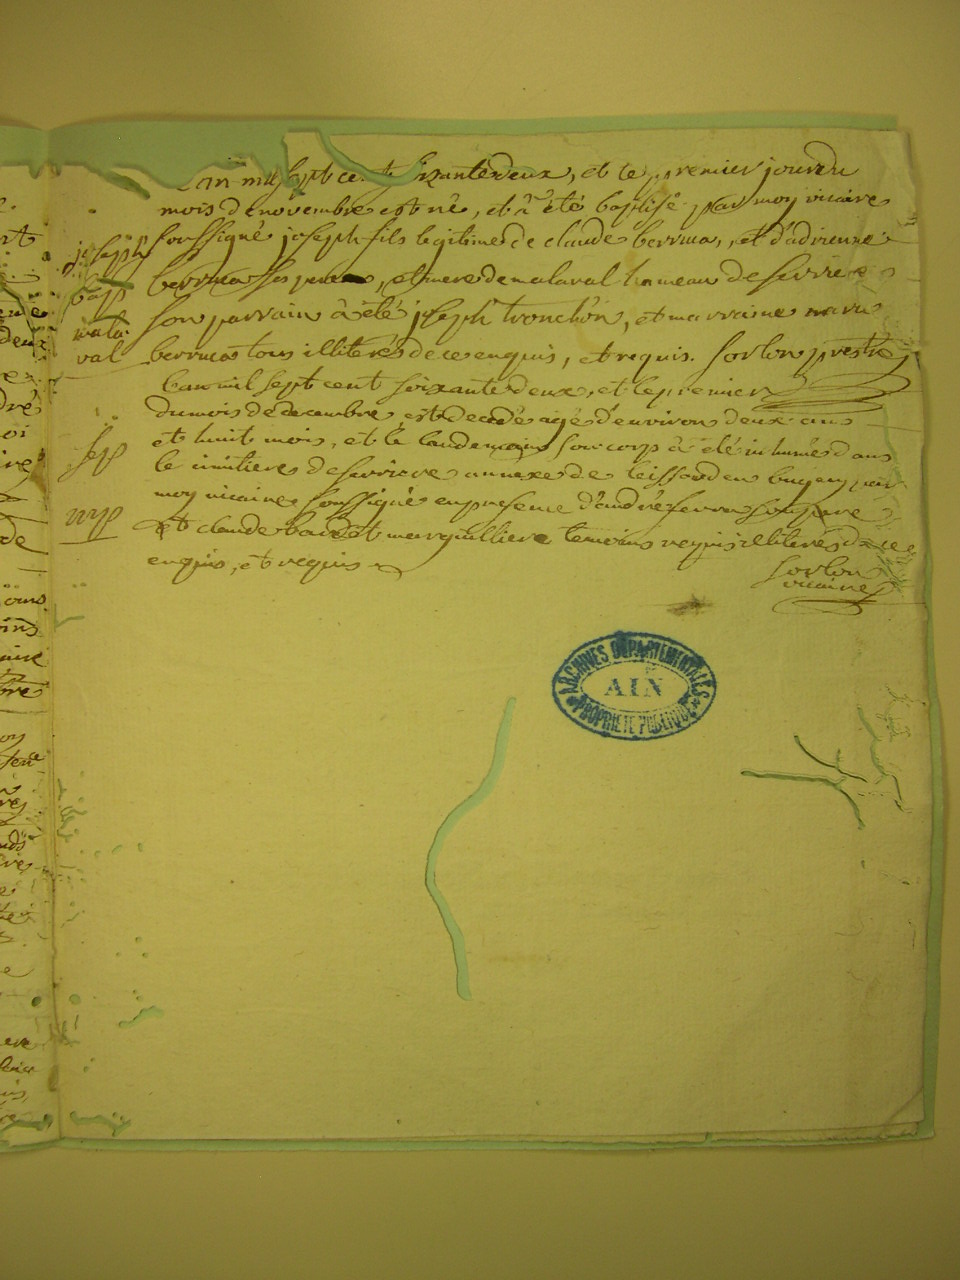 L'an mil sept cent soixante deux, et le premier jour du
mois de novembre est né, et à été baptisé par moy vicaire
soussigné joseph fils legitime de claude berruca, et d'adrienne
berruca ses pere, et mere de malaval hameau de serriere
son parrain à été joseph tronchon, et marraine marie
berruca tous illiterés de ce enquis, et requis. sorlon prestre
joseph
bap
mala
val
L'an mil sept cent soixante deux, et le premier
du mois de decembre est decedé agé d'environ deux ans
et huit mois, et le landemain son corps à été inhumé dans
le cimitiere de serriere annexe de leissard en bugey par
moy vicaire soussigné en presence d'andré ferra son pere
et claude baudet marguilliere temoins requis illiterés de ce
enquis, et requis
sep
sorlon
vicaire
ARCHIVES DEPARTEMENTALES
AIN
PROPRIETE PUBLIQUE